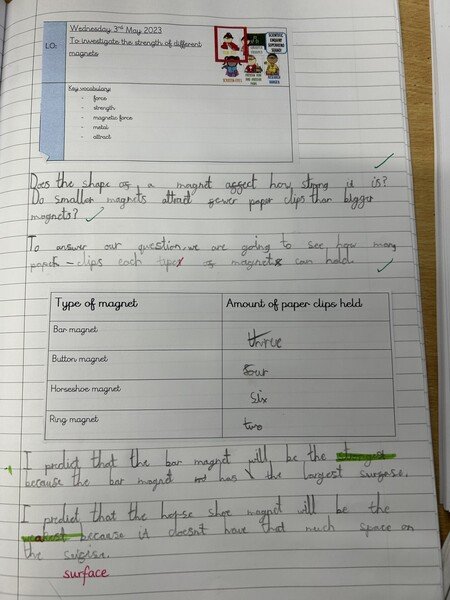 Wednesday 3rd May 2023
LO: To investigate the strength of different
magnets
Key vocabulary:
- force
- strength
- magnetic force
- metal
- attract
Does the shape of a magnet affect how strong it is?
Do smaller magnets attract fewer paper clips than bigger
magnets?
To answer our question, we are going to see how many
paper-clips each type of magnet can hold.
Type of magnet Amount of paper clips held
Bar magnet three
Button magnet four
Horseshoe magnet six
Ring magnet two
I predict that the bar magnet will be the strongest
because the bar magnet has the largest surfase.
I predict that the horse shoe magnet will be the
weakest because it doesn't have that much space on
the surfase.
surface